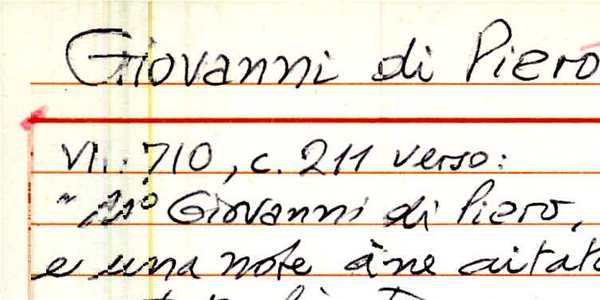 Giovanni di Piero
VI.: 710, c. 211 verso:
Giovanni di Piero,
e una note àne aitato